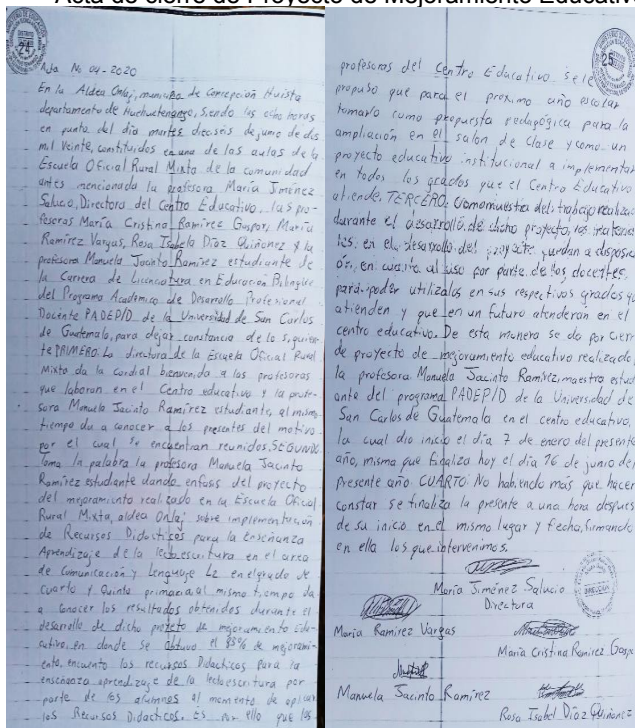 Acta de cierre de Proyecto de Mejoramiento Educativo
24
Acta No 04-2020
En la Aldea Onlaj, municipio de Concepción Huista
departamento de Huehuetenango, Siendo las ocho horas
en punto del día martes dieciséis de junio de dos
mil veinte, constituidos en una de las aulas de la
Escuela Oficial Rural Mixta de la comunidad
antes mencionada la profesora María Jiménez
Saluco, Directora del Centro Educativo, las pro-
fesoras María Cristina Ramírez Gaspar, María
Ramírez Vargas, Rosa Isabela Díaz Quiñonez y la
profesora Manuela Jacinto Ramírez estudiante de
la Carrera de Licenciatura en Educación Bilingüe
del Programa Académico de Desarrollo Profesional
Docente PADEP/D de la Universidad de San Carlos
de Guatemala, para dejar constancia de lo siguien-
te PRIMERO: La directora de la Escuela Oficial Rural
Mixta da la cordial bienvenida a las profesoras
que laboran en el Centro educativo y la profe-
sora Manuela Jacinto Ramírez estudiante, al mismo
tiempo da a conocer a los presentes del motivo
por el cual se encuentran reunidos, SEGUNDO:
Toma la palabra la profesora Manuela Jacinto
Ramírez estudiante dando enfasis del proyecto
del mejoramiento realizado en la Escuela Oficial
Rural Mixta, aldea Onlaj sobre implementación
de Recursos Didacticos para la Enseñanza
Aprendizaje de la lectoescritura en el area
de Comunicación y Lenguaje L2 en el grado de
Cuarto y Quinto primaria al mismo tiempo da
a conocer los resultados obtenidos durante el
desarrollo de dicho proyeto de mejoramiento Edu-
cativo, en donde se obtuvo el 85% de mejorami-
ento, encuanto los recursos Didacticos para la
enseñanza aprendizaje de la lectoescritura por
parte de los alumnos al momento de aplicar
los Recursos Didacticos. Es por ello que las
25
profesoras del Centro Educativo se le
propuso que para el proximo año escolar
tomarlo como propuesta pedagógica para la
ampliación en el salon de Clase y como un
proyecto educativo institucional a implementar
en todos los grados que el Centro Educativo
atiende, TERCERO: Como muestra del trabajo realizado
durante el desarrollo de dicho proyecto, los materia-
les, en el desarrollo del proyecto quedan a disposici
ón, en cuanto al uso por parte de los docentes,
para poder utilizalos en sus respectivos grados que
atienden y que en un futuro atenderan en el
centro educativo. De esta manera se da por cierre
de proyecto de mejoramiento educativo realizado,
la profesora Manuela Jacinto Ramírez, maestro estudi
ante del programa PADEP/D de la Universidad de
San Carlos de Guatemala en el centro educativo,
la cual dio inicio el día 7 de enero del presente
año, misma que finaliza hoy el día 16 de junio del
presente año CUARTO: No habiendo más que hacer
constar se finaliza la presente a una hora después
de su inicio en el mismo lugar y fecha, firmando
en ella los que intervenimos.
María Jiménez Salucio
Directora
María Ramirez Vargas
María Cristina Ramirez Gaspa
Manuela Jacinto Ramírez
Rosa Isabel Díaz Quiñonez